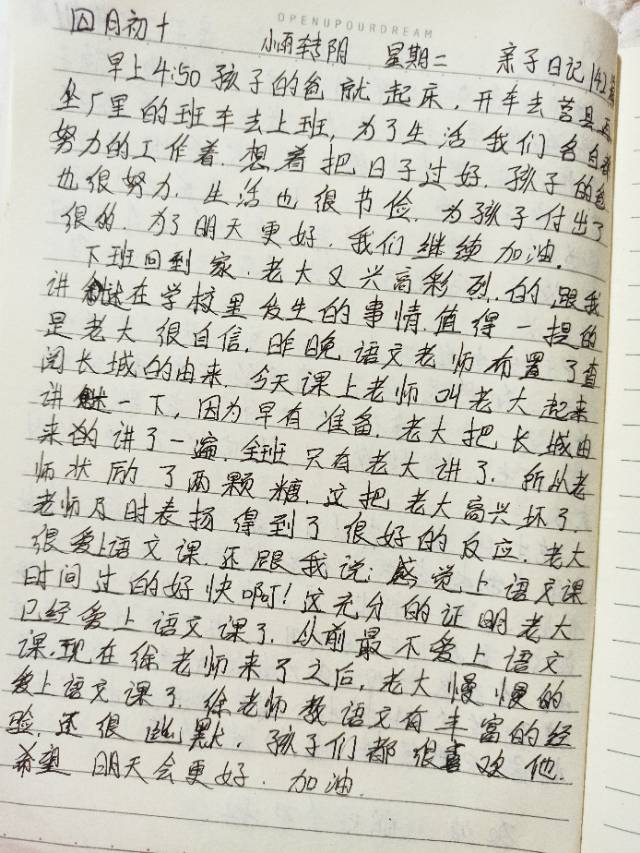 OPENUPOURDREAM
四月初十 小雨转阴 星期二 亲子日记142篇
早上4:50孩子的爸就起床,开车去莒县再
坐厂里的班车去上班,为了生活我们各自都
努力的工作着.想着把日子过好.孩子的爸
也很努力.生活也很节俭.为孩子付出了
很的.为了明天更好.我们继续加油.
下班回到家.老大又兴高彩烈.的跟我
讲述在学校里发生的事情.值得一提的
是老大很自信.昨晚语文老师布置了查
阅长城的由来.今天课上老师叫老大起来
讲述一下,因为早有准备.老大把长城由
来的讲了一遍.全班只有老大讲了.所以老
师状励了两颗糖.这把老大高兴坏了.
老师及时表扬得到了很好的反应.老大
很爱上语文课.还跟我说:感觉上语文课
时间过的好快啊!这充分的证明老大
已经爱上语文课了.从前最不爱上语文
课.现在徐老师来了之后,老大慢慢的
爱上语文课了.徐老师教语文有丰富的经
验.还很幽默.孩子们都很喜欢他.
希望明天会更好.加油.